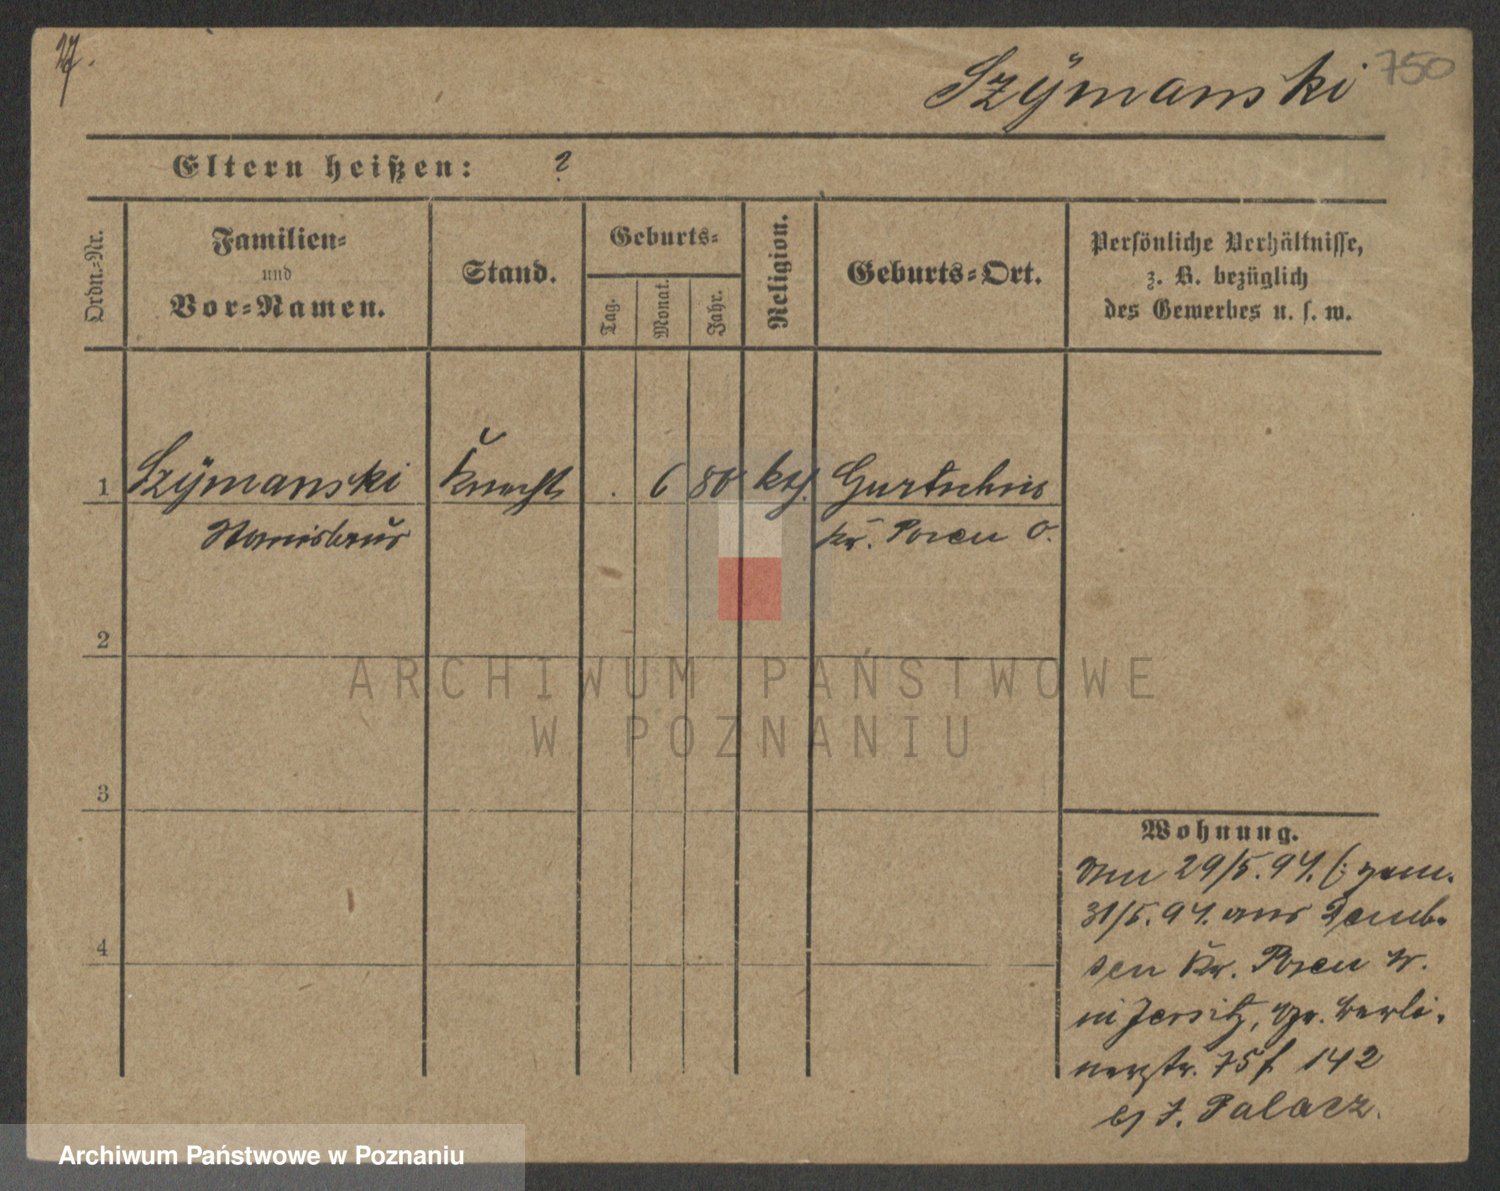 Szÿmanski 750
Eltern heißen: ?
Ordn.-Nr.
Familien-
und
Vor-Namen.
Stand.
Geburts-
Tag.
Monat.
Jahr.
Religion.
Geburts-Ort.
Persönliche Verhältnisse,
z. B. bezüglich
des Gewerbes u. s. w.
1 Szÿmanski Knecht . 6 80 kth. Gurtschin
Stanislaus Kr. Posen O.
2
3
4
Wohnung.
29/5.94. (: gem.
31/5.94. aus Demb-
sen Kr. Posen W.
in Jersitz, Gr. Berli-
nerstr. 75 f 142
b/ J. Palacz.
ARCHIWUM PAŃSTWOWE
W POZNANIU
Archiwum Państwowe w Poznaniu